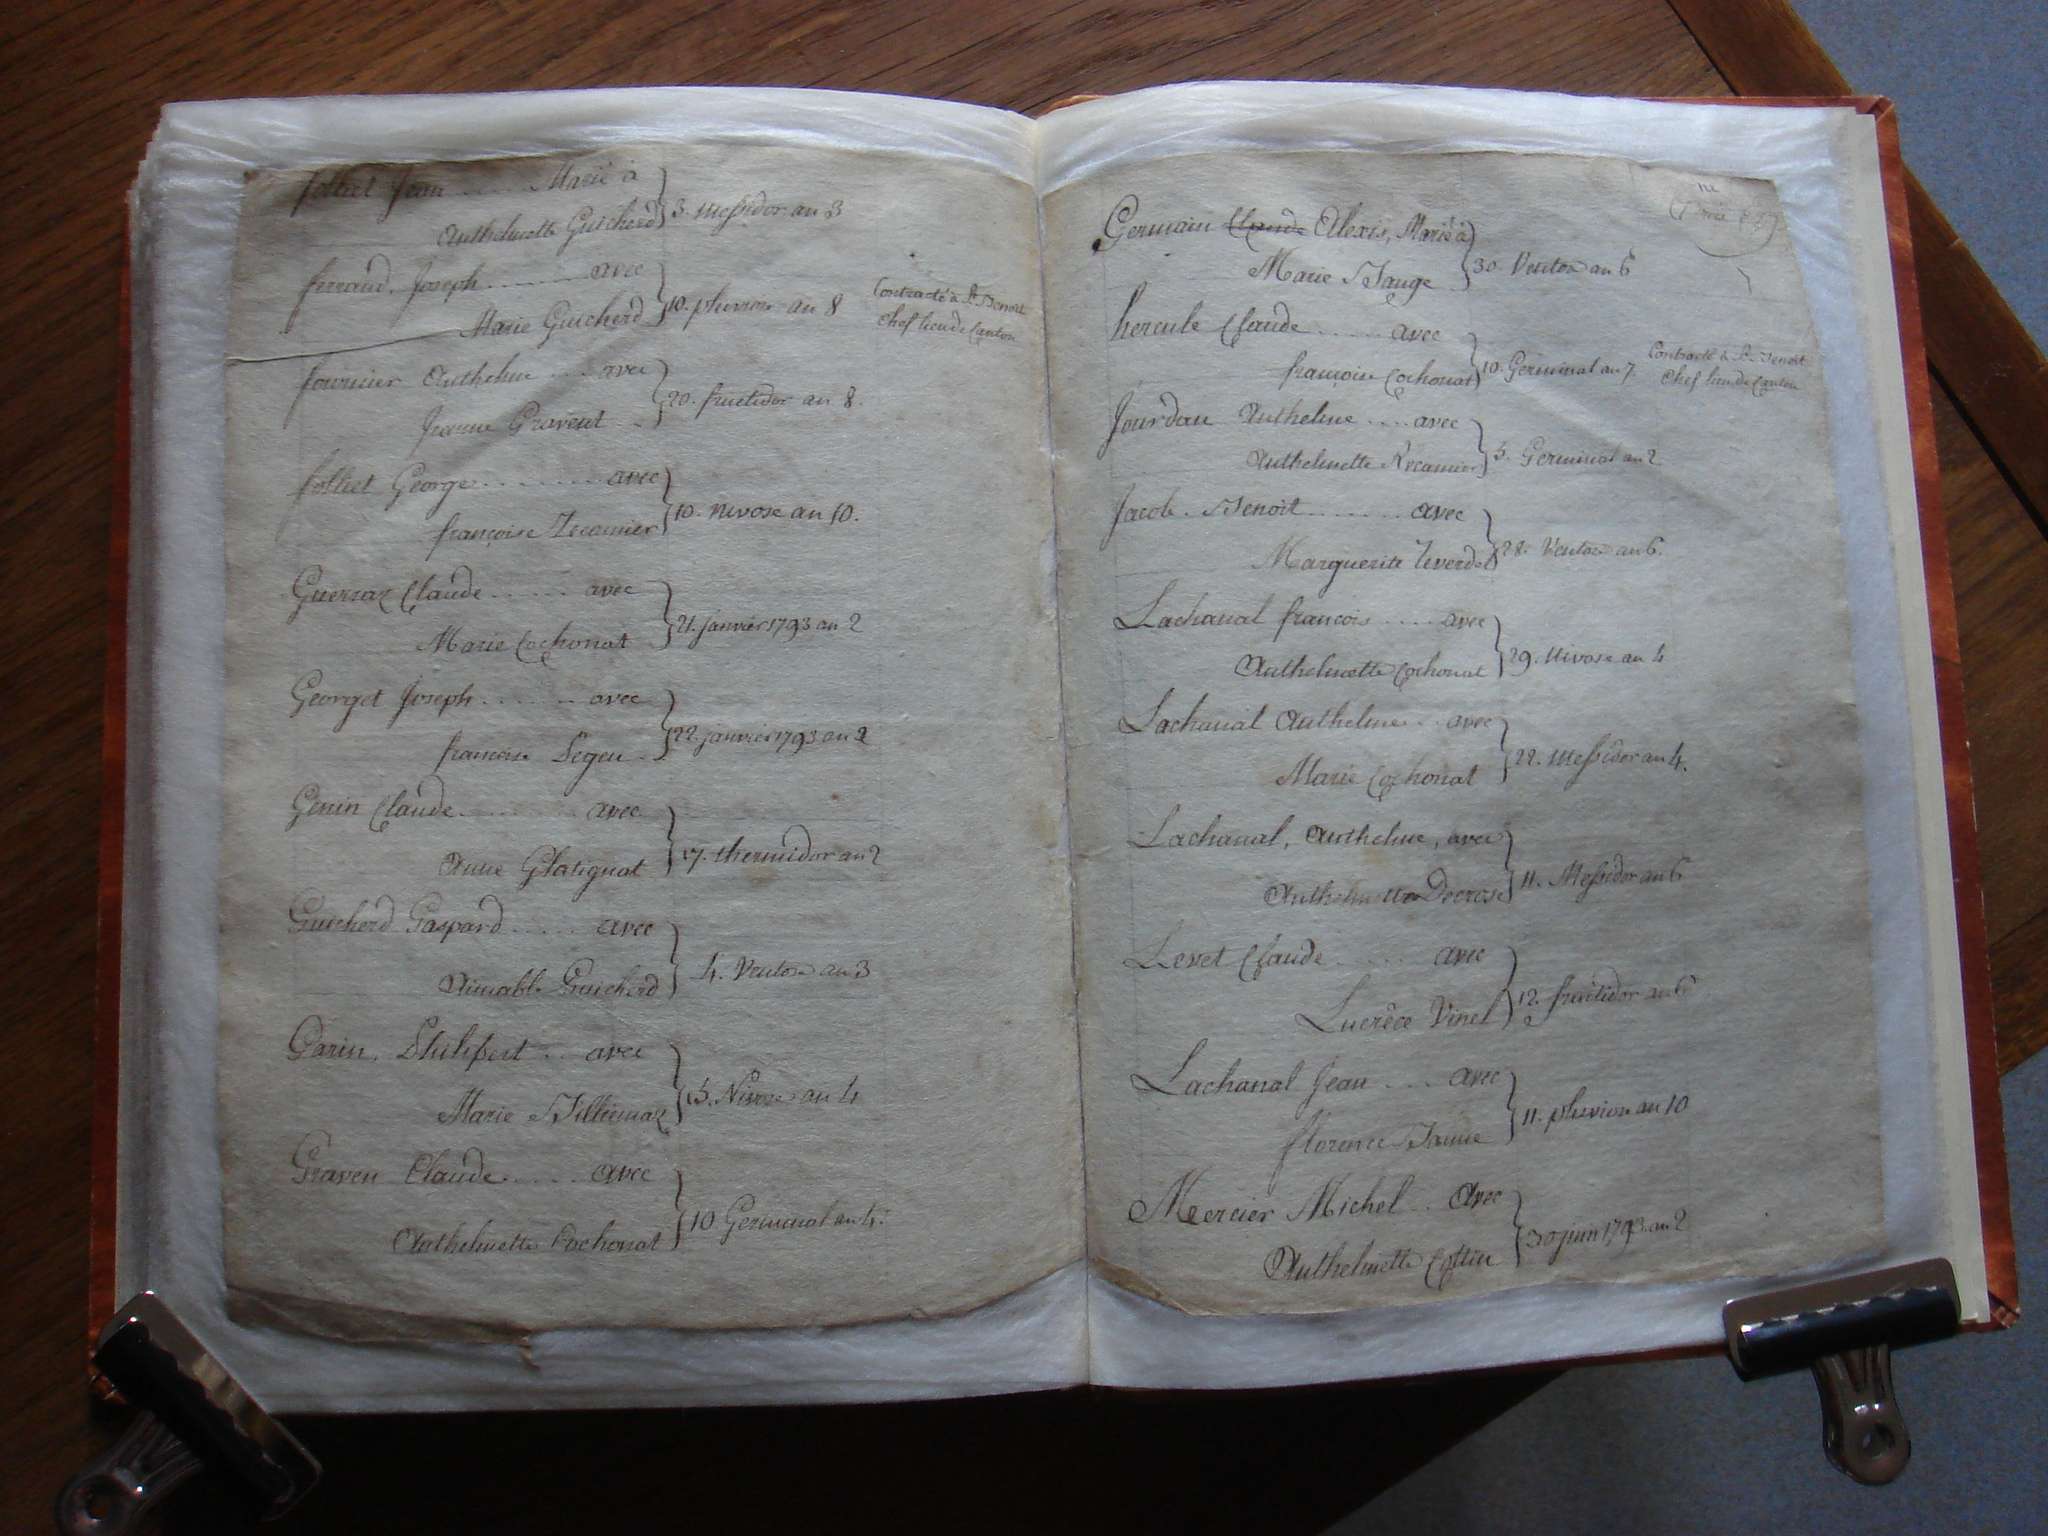 folliet Jean ...... Marié à
Anthelmette Guicherd } 3. Messidor an 3
ferraud, Joseph ......... avec
Marie Guicherd } 10. pluviose an 8 Contracté à St. Benoit
chef lieu de Canton
fournier Anthelme .... avec
Jeanne Gravent .. } 20. fructidor an 8.
folliet George ........ avec
françoise Recamier } 10. nivose an 10.
Guerraz Claude ...... avec
Marie Cochonat . } 21. janvier 1793 an 2
Georget Joseph ...... avec
francoise Degeu . } 22. janvier 1793 an 2
Genin Claude .......... avec
Anne Platignat } 17. thermidor an 2
Guicherd Gaspard ..... avec
Aimable Guicherd } 4. Ventose an 3
Garin, Philipert .. avec
Marie Billiemaz } 15. Nivose an 4
Graven Claude ..... avec
Anthelmette Cochonat } 10 Germinal an 4.
Germain Claude Alexis, Marié à
Marie Bauge } 30. Ventose an 6
hercule Claude ...... avec
françoise Cochonat } 10. Germinal an 7. Contracté à St. Benoit
chef lieu de Canton
Jourdan Anthelme .... avec
Anthelmette Recamier } 5. Germinal an 2
Jacob. Benoit ........ avec
Marguerite Reverdel } 28. Ventose an 6.
Lachanal francois .... avec
Anthelmette Cochonat } 29. nivose an 4
Lachanal Anthelme .. avec
Marie Cochonat } 22. Messidor an 4.
Lachanal, Anthelme, avec
Anthelmette Decrose } 11. Messidor an 6
Levet Claude ..... avec
Lucrêce Vinet } 12. fructidor an 6
Lachanal Jean .... avec
florence Banne } 11. pluviose an 10
Mercier Michel .. avec
Anthelmette Cottin } 30 juin 1793 an 2